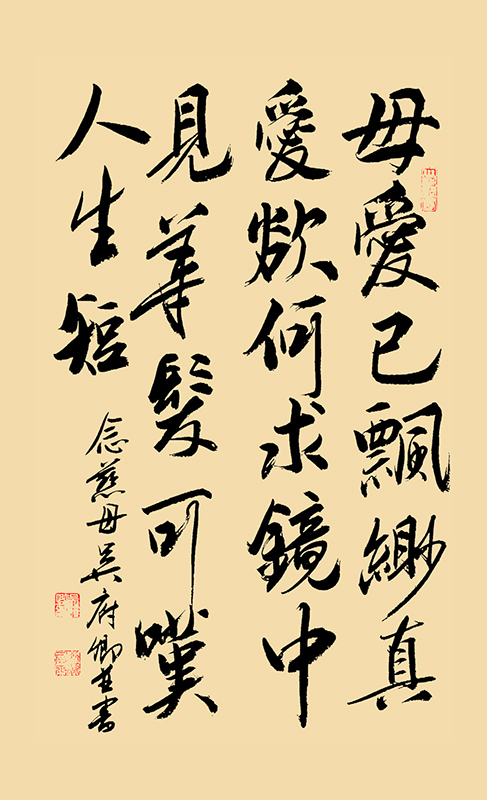 毋愛已飄緲真
愛欲何求鏡中
見華髮可嘆
人生短
念慈母吳府卿並書